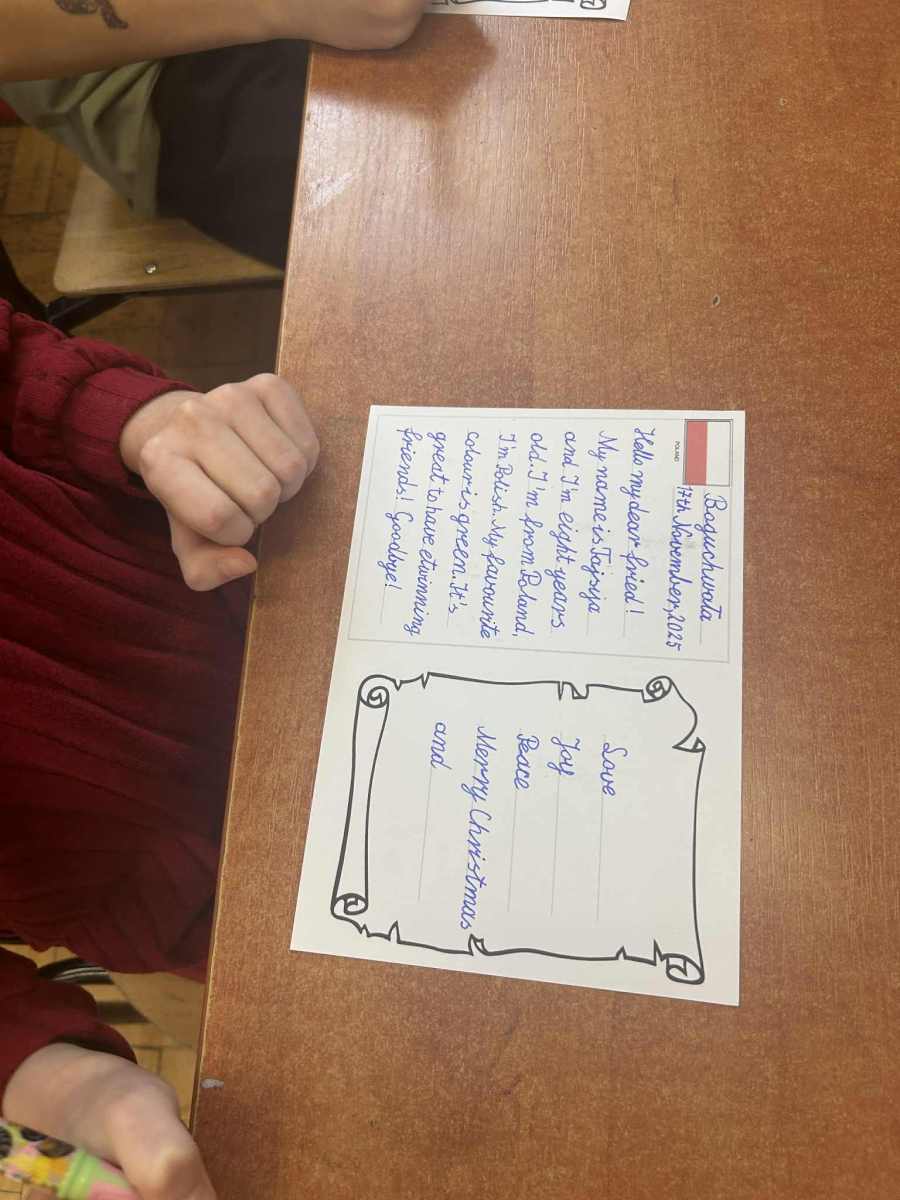 POLAND
Boguchwała
17th November, 2025
Hello my dear fried!
My name is Tajsija
and I'm eight years
old. I'm from Poland,
I'm Polish. My favourite
colour is green. It's
great to have etwinning
friends! Goodbye!
Love
Joy
Peace
Merry Christmas
and